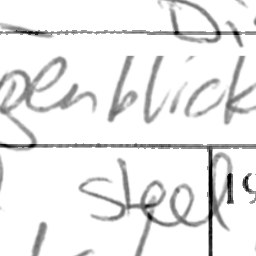 Di
genblick
steel 19